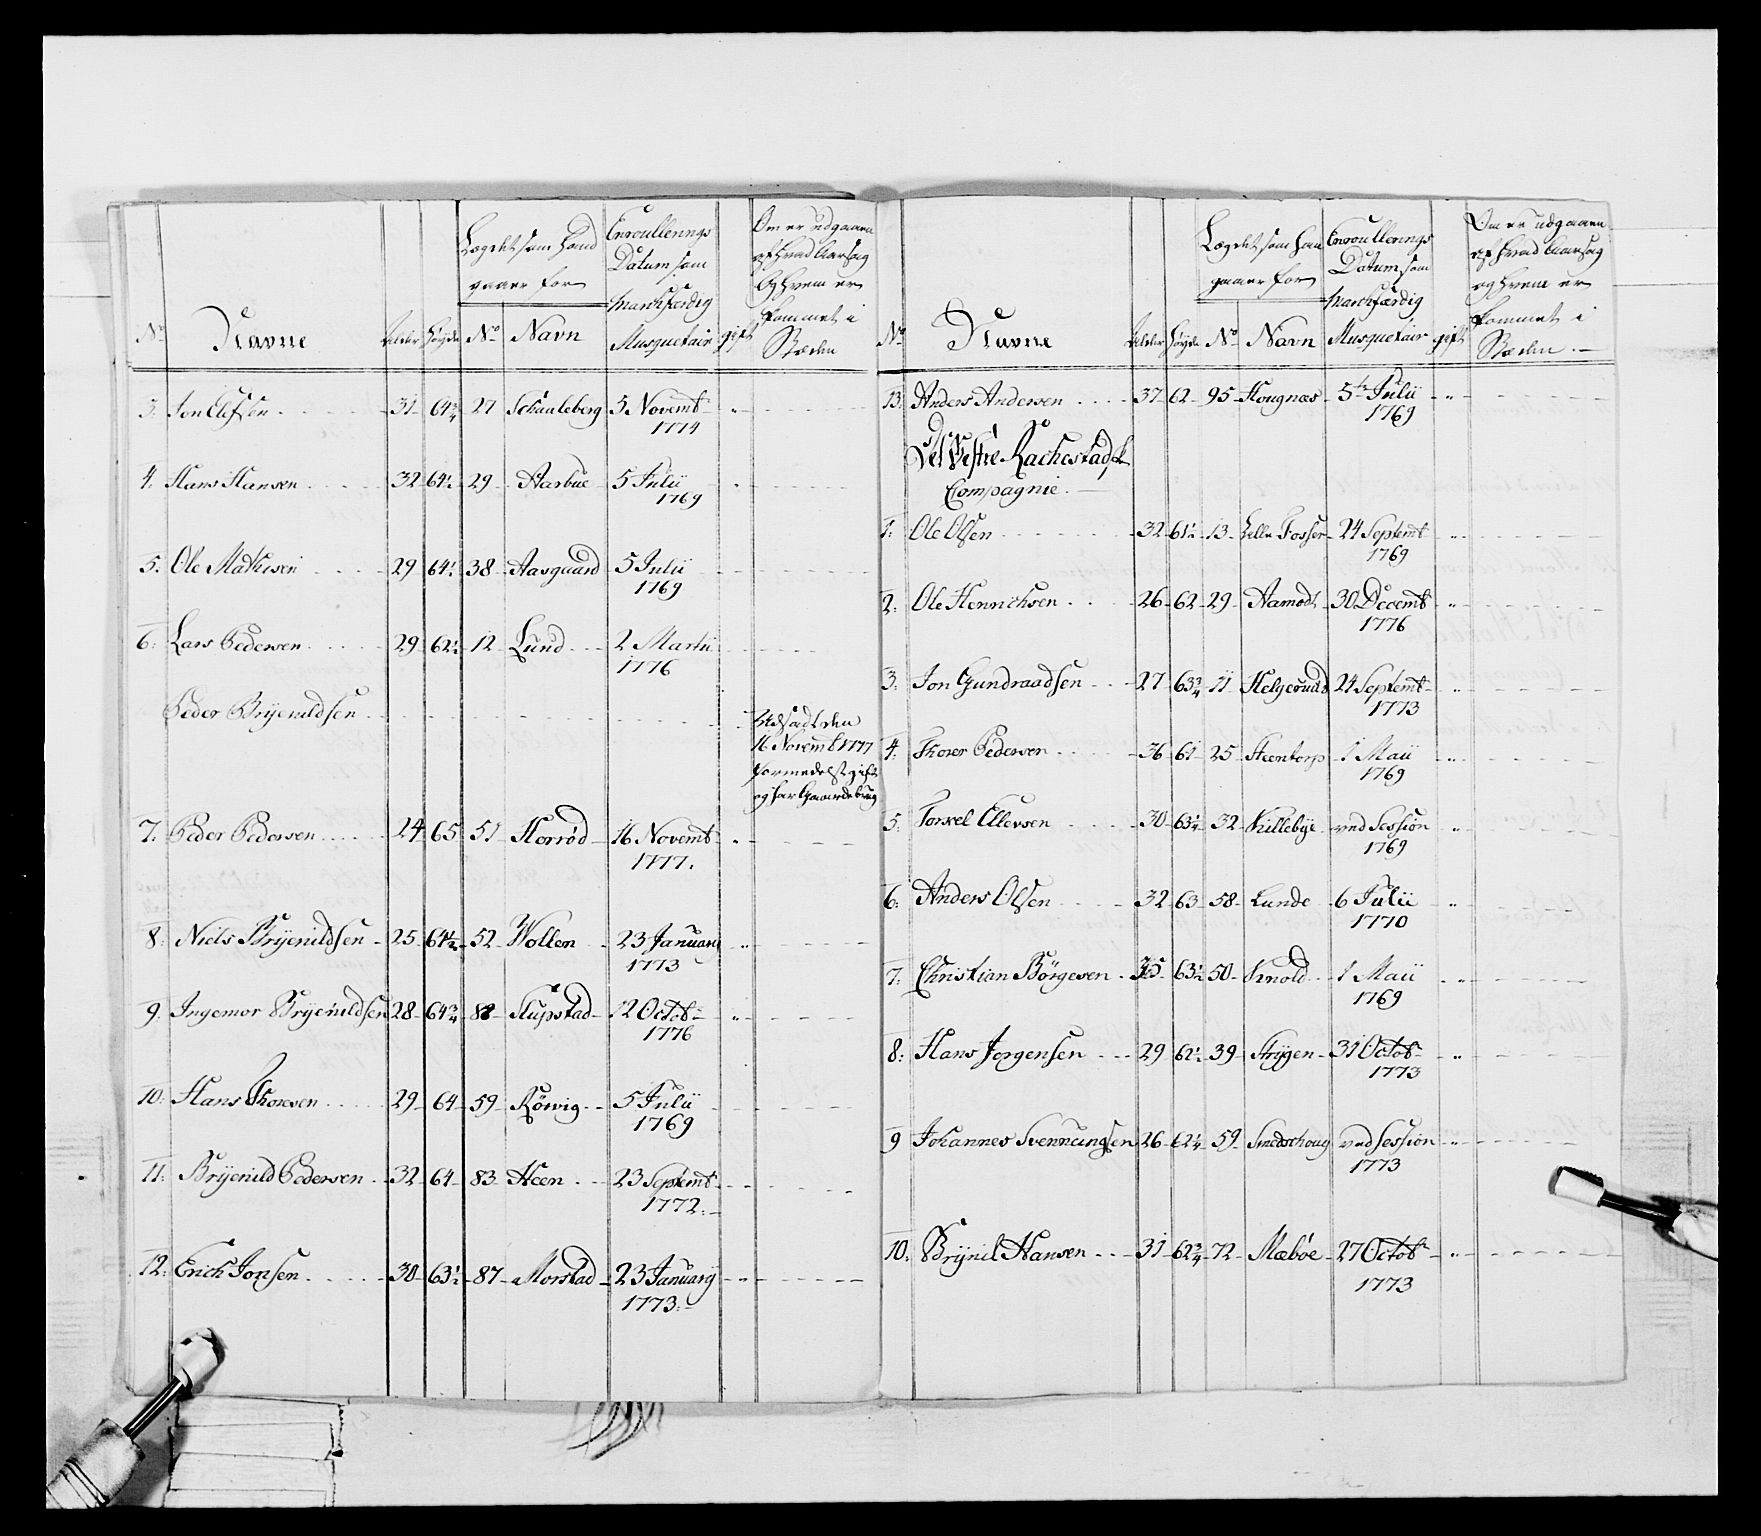 Lægdet som hand
gaaer for
Enroullerings
Datum som
marchfærdig
Musquetair
Om er udgaaen
af hvad Aarsag
og hvem er
kommet i
Stæden
No Navne Alder Høyde No Navn gift
3. Jon Olefsen 31 64 3/4 27 Schauleberg 5 Novembr
1774
4. Hans Hansen 32 64 1/2 29 Aasbue 5 Julii
1769
5. Ole Mathisen 29 64 1/2 38 Aasgaard 5 Julii
1769
6. Lars Pedersen 29 62 1/2 12 Lund 2 Martii
1776
Peder Bryenildsen Udsadt den
16 Novemb 1777
formedelst gift
og har Gaardebrug
7. Peder Pedersen 24 65 51 Horrød 16 Novembr
1777.
8. Niels Bryenildsen 25 64 1/2 52 Wollen 23 January
1773
9. Ingemor Bryenildsen 28 64 3/4 88 Stupstad 12 Octob
1776
10. Hans Thoresen 29 64 59 Rövig 5 Julii
1769
11. Bryenild Pedersen 32 64 83 Heen 23 Septembr
1772.
12. Erich Jonsen 30 63 1/2 87 Morstad 23 January
1773.
Lægdet som han
gaaer for
Enroullerings
Datum som
marchfærdig
Musquetair
Om er udgaaen
af hvad Aarsag
og hvem er
kommet i
Stæden
No Navne Alder Høyde No Navn gift
13. Anders Andersen 37 62 95 Hougnæs 5te Julii
1769
Det Vestre Rachestadsk
Compagnie.
1. Ole Olsen 32 61 1/2 13 Lille Fosser 24 Septembr
1769
2. Ole Henrichsen 26 62 29 Aamodt 30 Decembr
1776
3. Jon Gundraadsen 27 63 3/4 11 Helgerud 24 Septembr
1773
4. Thorer Pedersen 36 61 25 Steentorp 1 Maii
1769
5. Torkel Ellevsen 30 63 1/4 32 Killebye ved Session
1769
6. Anders Olsen 32 63 58 Lunde 6 Julii
1770
7. Christian Börgesen 35 63 1/2 50 Knold 1 Maii
1769
8. Hans Jorgensen 29 62 1/2 39 Strygen 31 Octob
1773
9 Johannes Svennungsen 26 62 1/4 59 Smedschoug ved Session
1773
10. Brynil Hansen 31 62 3/4 72 Mæbøe 27 Octob
1773